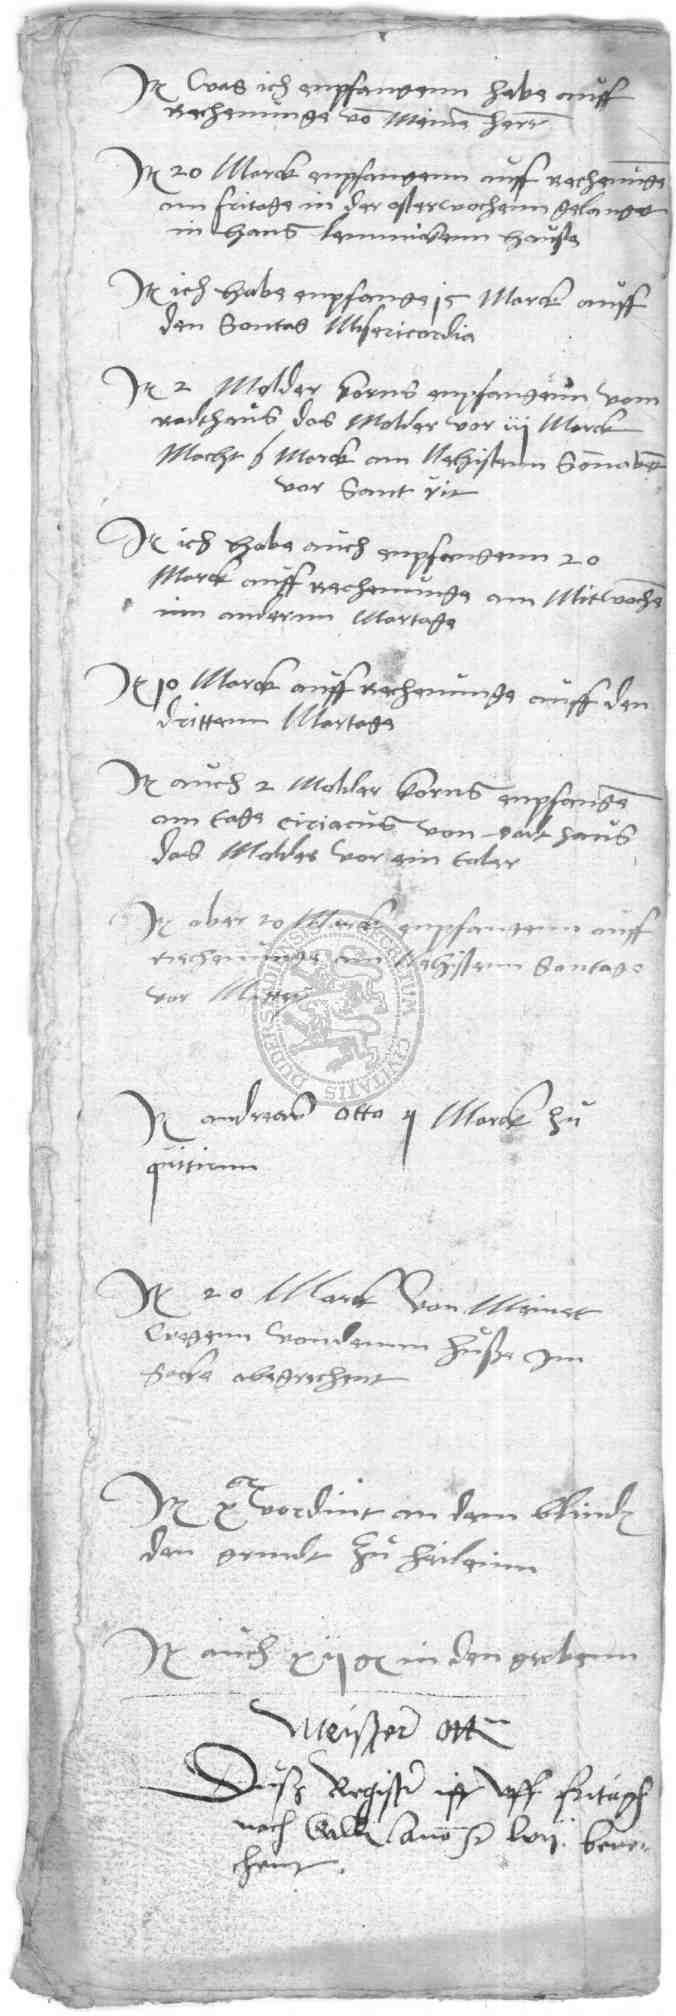 It Was ich enpfangenn habe auff
Rechenunge vo Meine herr
It 20 Marck enpfangenn auff rechenunge
am fritage in der osterwochenn gelanget
in Hans hausse
It ich habe enpfange 15 Marck auff
den Sontag Misericordia
It 2 Molder korns enpfangenn vom
radthaus das Molder vor iij Marck
Macht 6 Marck am Nehistenn Sonabet
vor Sant vit
It ich habe auch enpfangenn 20
Marck auff rechenunge am Mitwoche
im andernn Martage
It 10 Marck auff rechenunge auff den
drittenn Martage
It auch 2 Molder korns enpfange
am tage ciriacus von rait haus
das Molder vor ein taler
It aber 20 Marck enpfangenn auff
Rechenunge am Nehistenn Sontage
vor
It andreas otto ij Marck zu
It 20 Marck von Meinet
wegenn vondenn husse Im
Sacke abegerechent
It x vordint an dem blind
den grundt zu
It auch xij in den grabenn
Meister ott
Dusz Register ist vff fritagh
nach Galli Anno lvij. bere-
chent.
SIGILLUM CIVITATIS